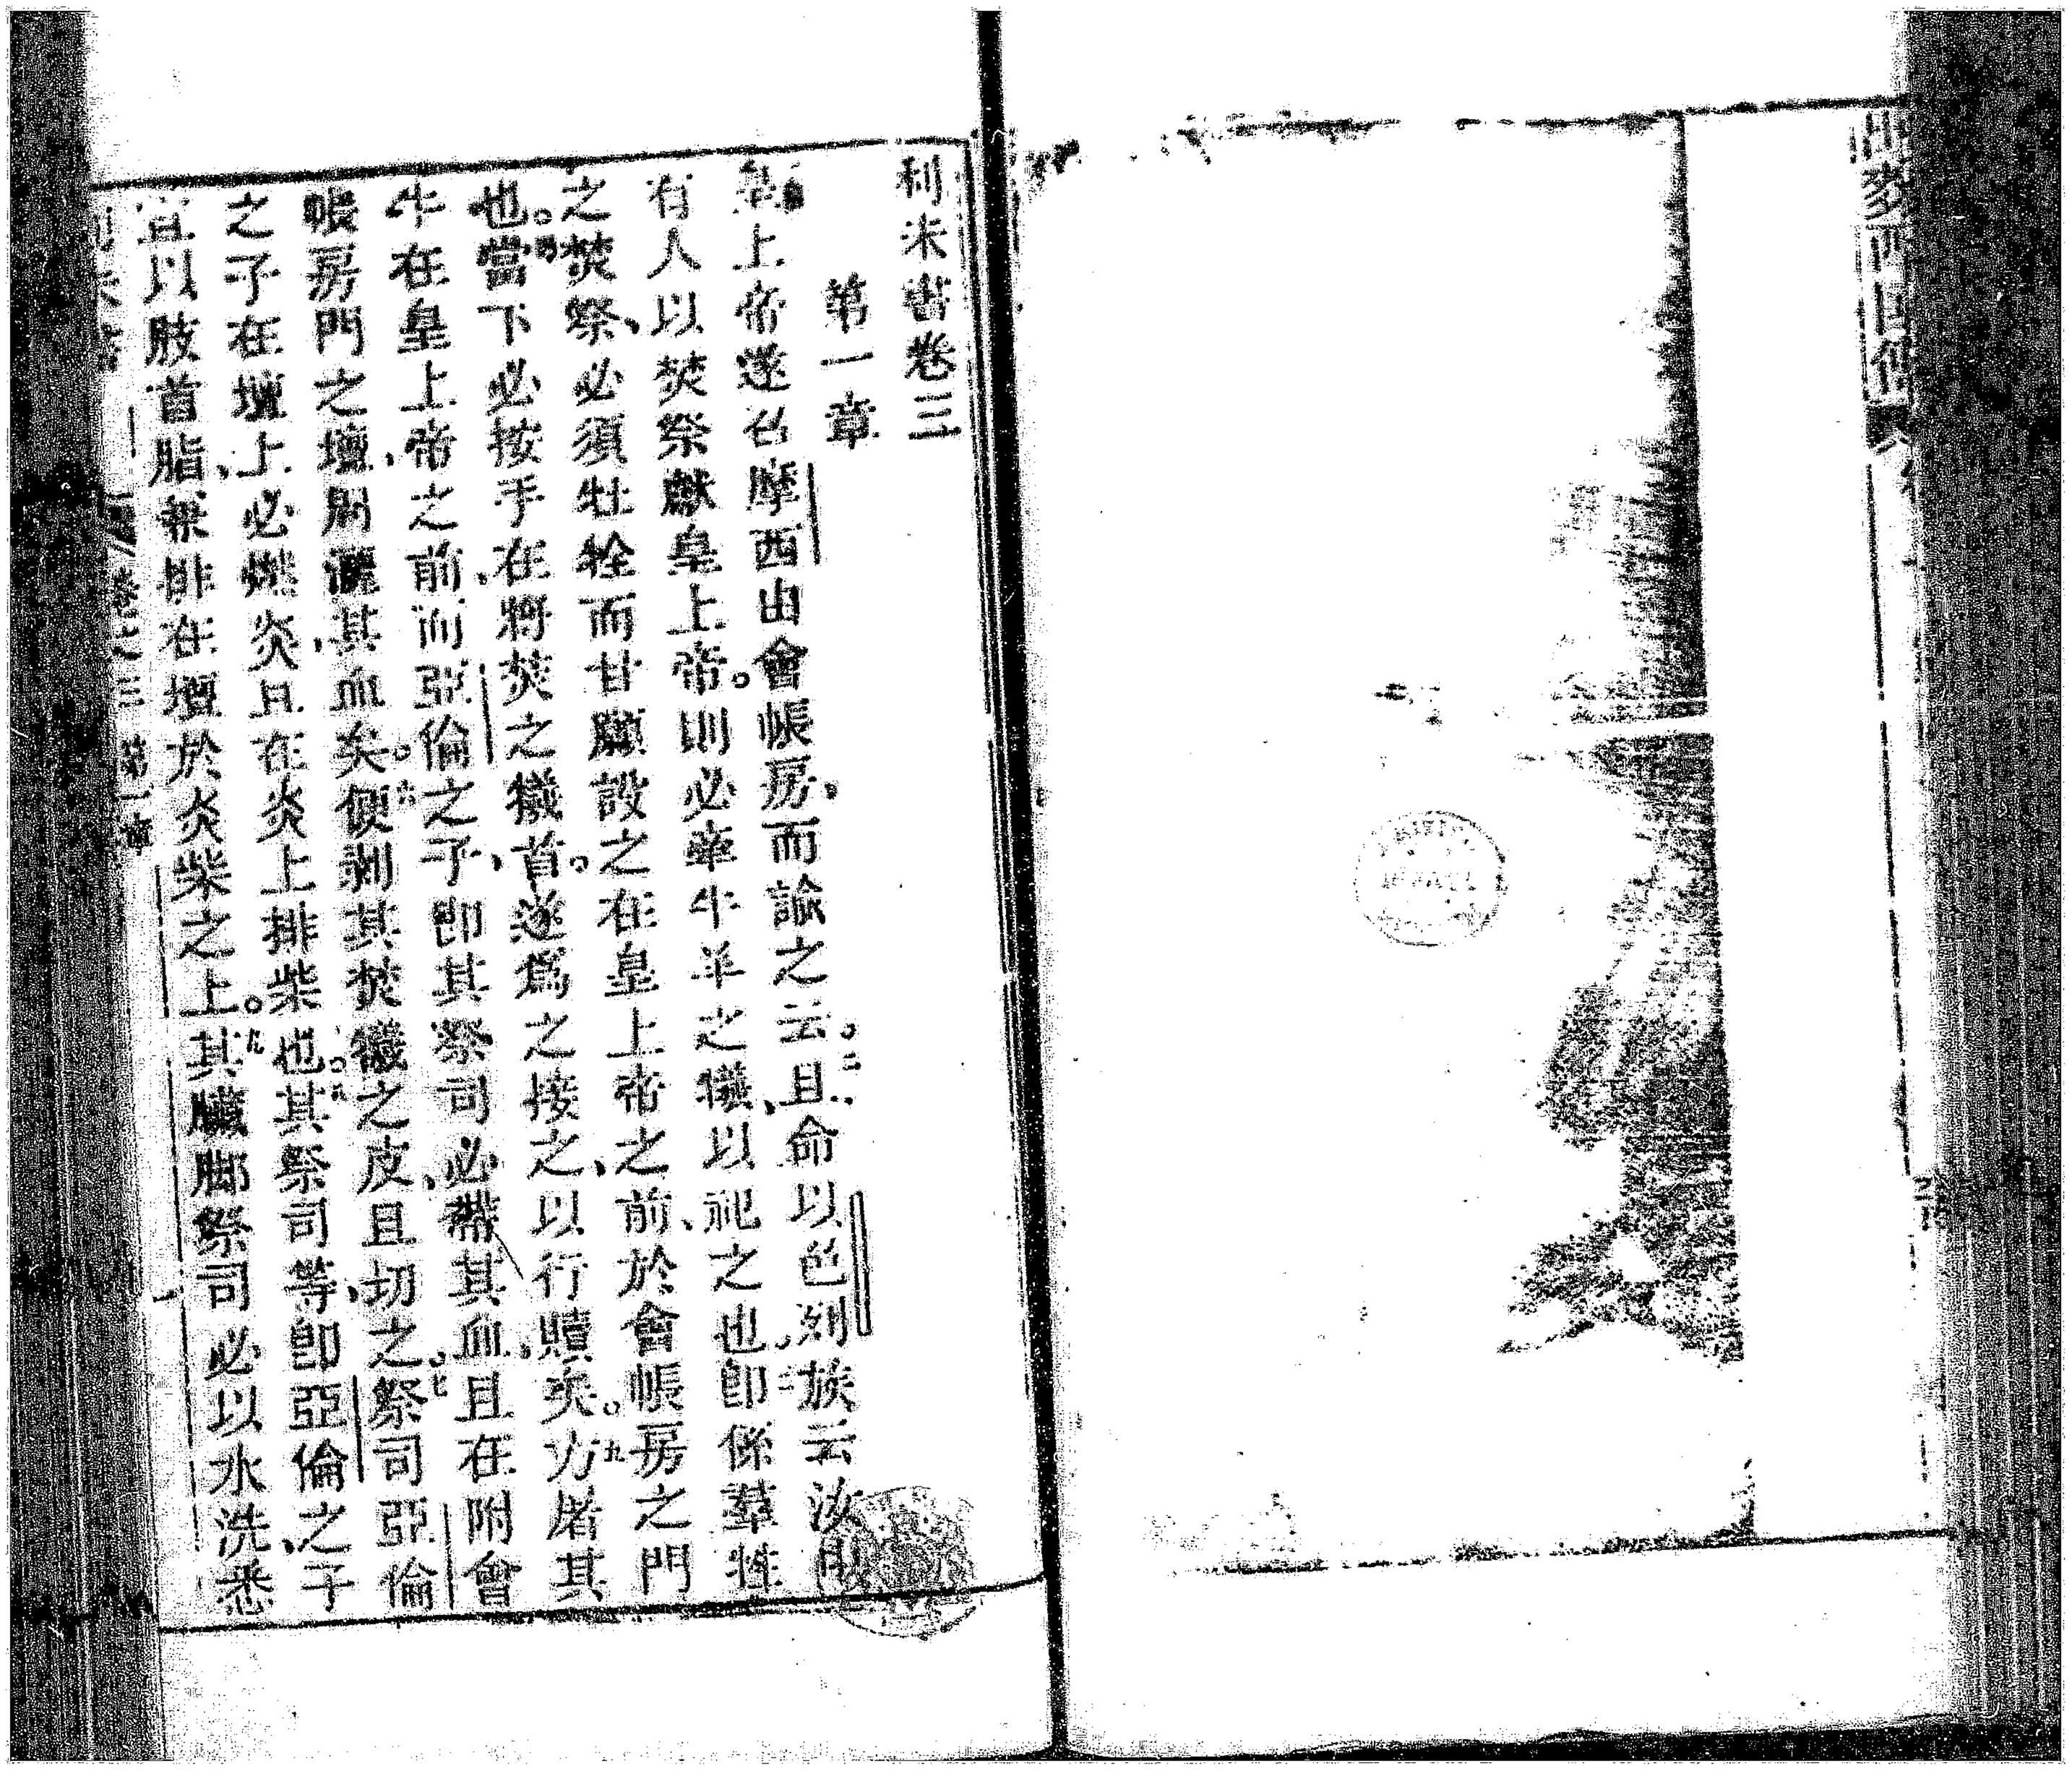 利未書卷三
第一章
皇上帝遂召摩西由會帳房、而諭之云。二且命以色列族云汝附
有人以焚祭獻皇上帝。則必牽牛羊之犧、以祀之也。三即係羣牲
之焚祭、必須牡牷而甘願設之在皇上帝之前、於會帳房之門
也。四當下必按手在將焚之犧首。遂爲之接之、以行贖矣。五方屠其
牛在皇上帝之前、而亞倫之子、即其祭司必帶其血、且在附會
帳房門之壇、周灑其血矣。六便剝其焚犧之皮、且切之。七祭司亞倫
之子在壇上必燃炎且在炎上排柴也。八其祭司等、即亞倫之子
宜以肢首脂、並排在壇於炎柴之上。九其臟脚祭司必以水洗、悉
卷之三 第一章 一